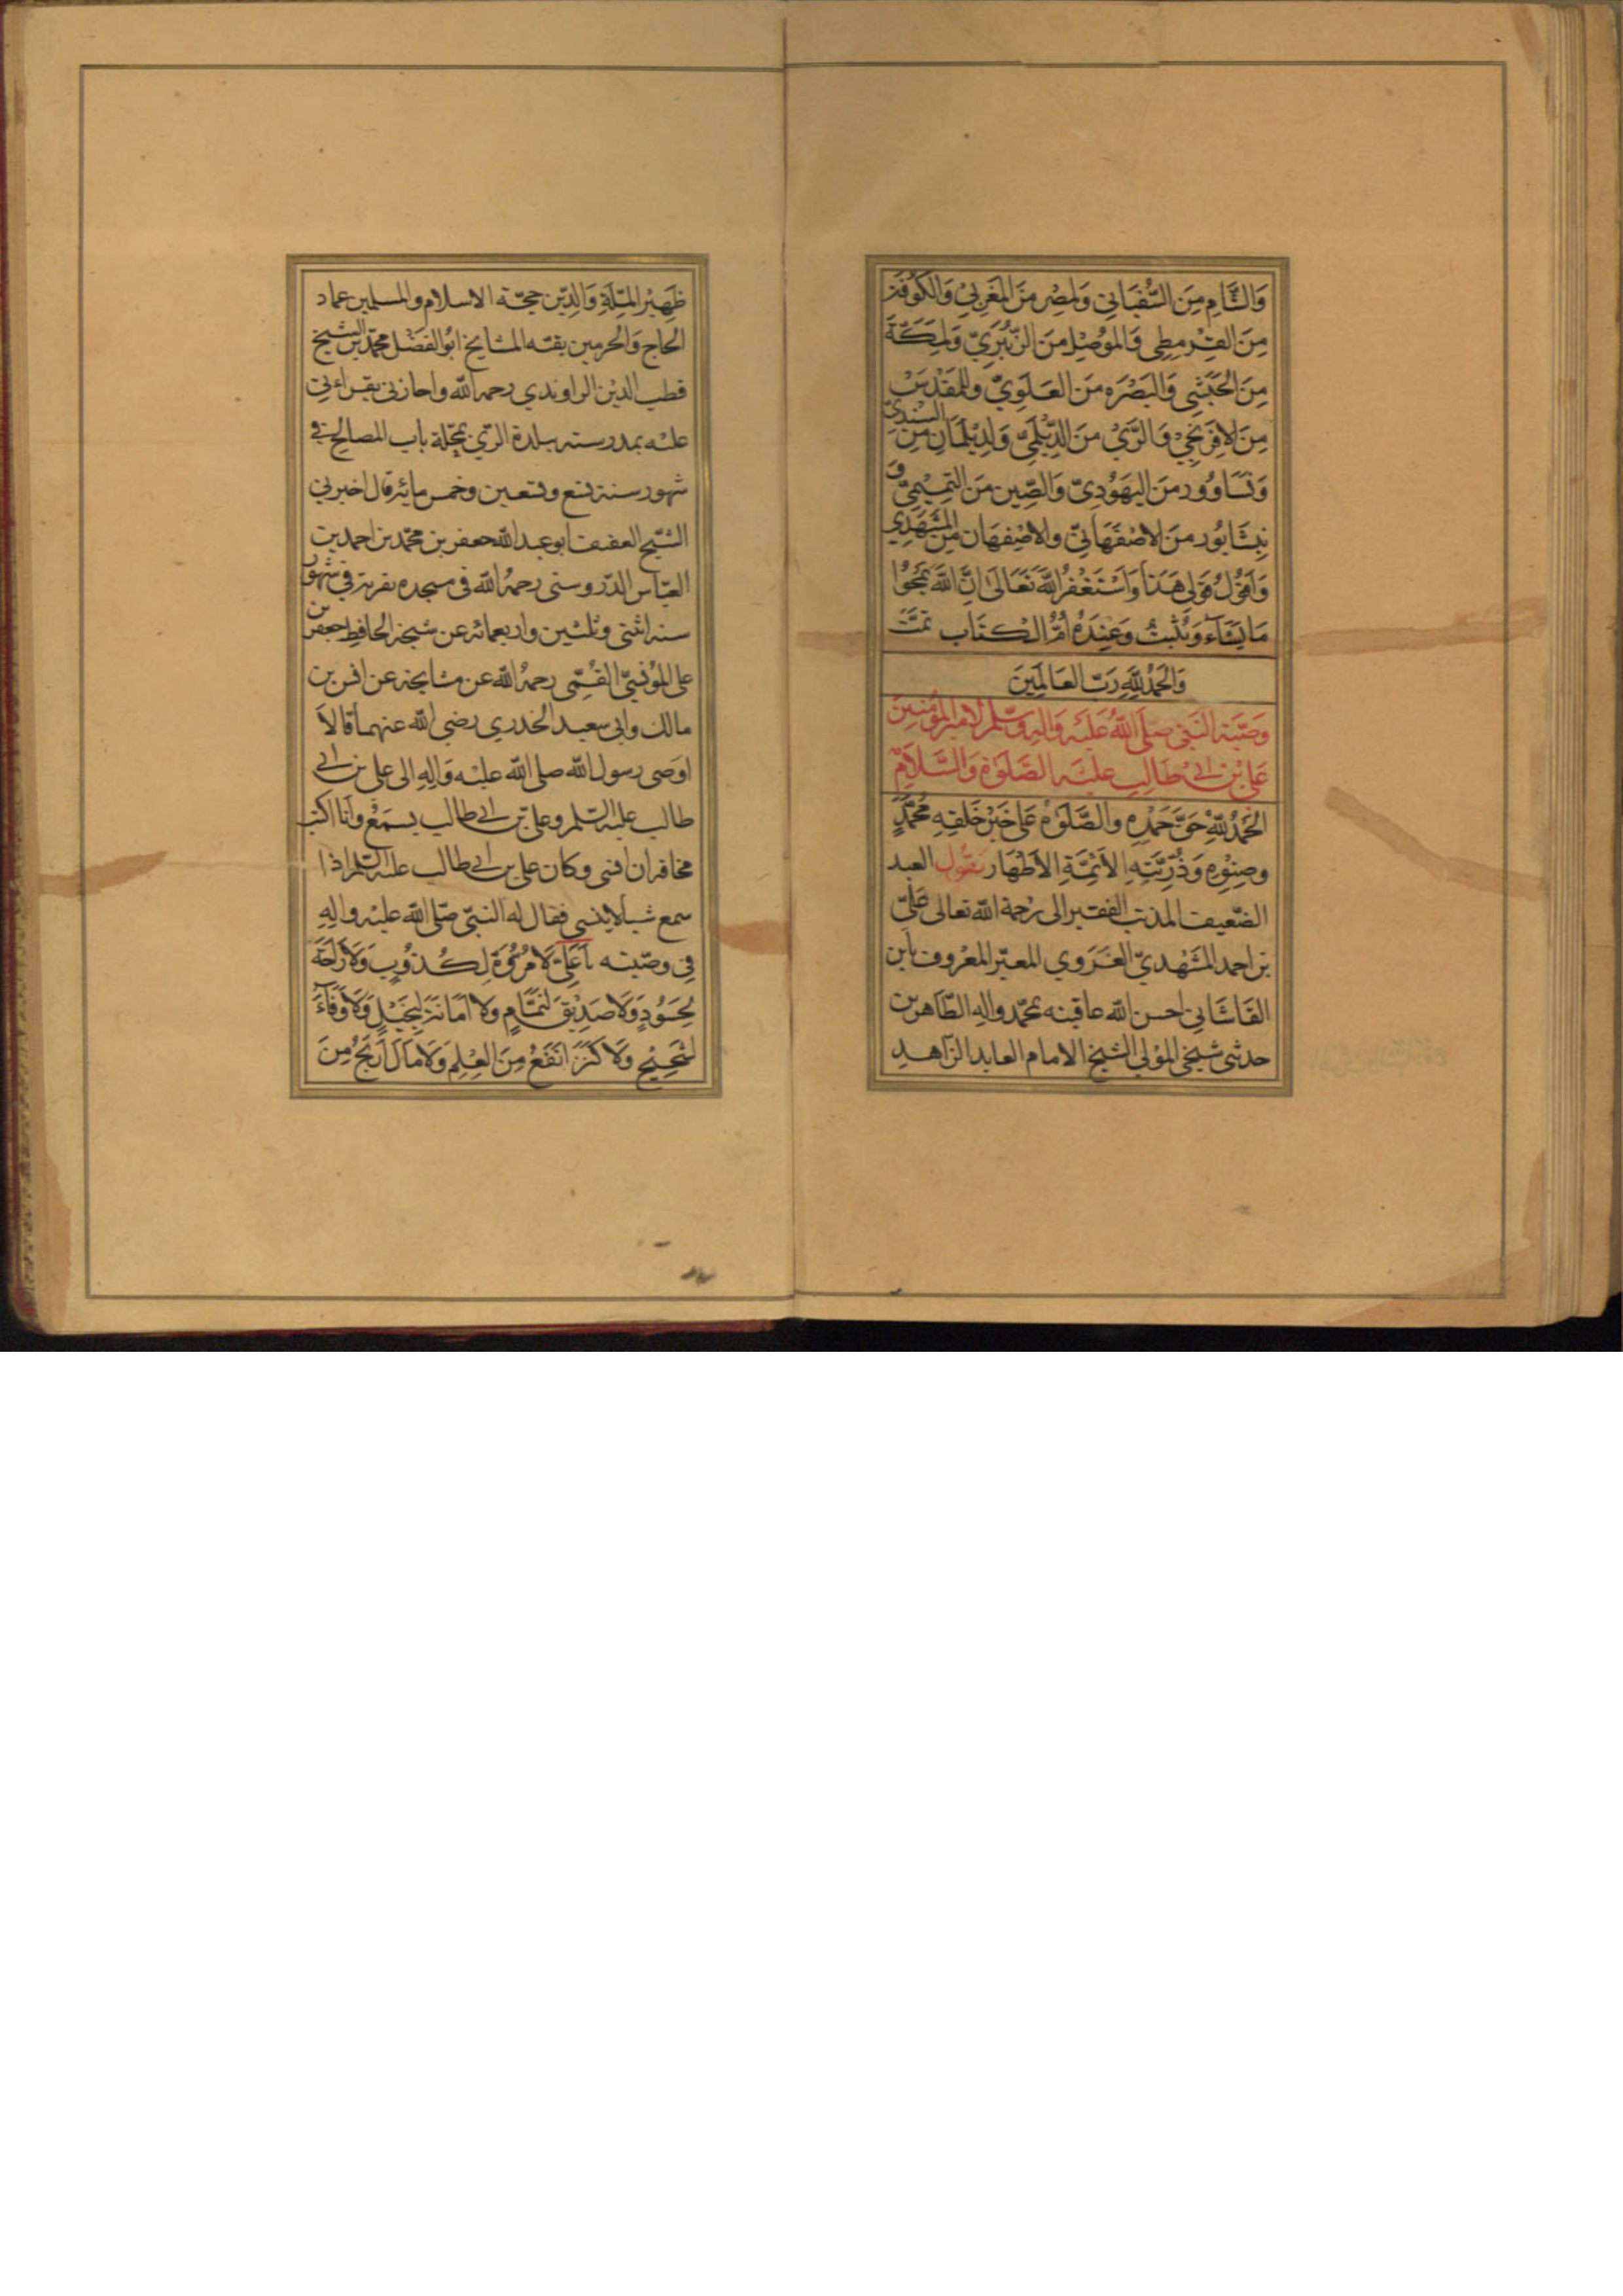 وَالشَّامِ مِنَ السُّفْيَانِي وَلِمِصْرَ مِنَ المَغْرِبِيّ وَالكُوفَة
مِنَ القِرْمِطِي وَالمَوْصِل مِنَ الزُّبَيْرِيّ وَلِمَكَّةَ
مِنَ الحَبَشِي وَالبَصْرَه مِنَ العَلَوِيّ وللمَقْدِس
مِنَ الافرَنجِيْ وَالرَّيْ مِنَ الدَّيْلَمِيّ وَلِدَيْلَمَانِ مِنَ السندىّ
مِنَ اليَهُوْدِىّ وَالصِّين مِنَ التَمِيْمِيّ و
نِيشَابُور مِنَ الاصْفَهَانِيّ والاصْفِهَان مِنَ المَشْهَدِي
وَاقُولُ قَولى هَذَا وَاَسْتَغْفِرُ اللهَ تَعَالَى اِنَّ اللهَ يَمْحُوا
مَايَشَاءُ وَيُثْبِتُ وَعِنْدَهُ اُمُّ الكِتَاب تمّت
وَالحَمْدُ لِلّهِ رَبّ العَالَمِينَ
وَصِيَّة النَبّي صَلَّى اللهُ عَلَيْه وَالِه وَسّلم لامِيرِ المؤمِنِين
عَلِىّ بْنِ ابىْ طَالِبٍ عَلَيْه الصَّلَوٰة وَالسَّلاَمْ
الحَمْدُ لِلّهِ حَقَّ حَمْدِهِ والصَّلَوٰةُ عَلَى خَيْرِ خَلْقِهِ مُحَمَّدٍ
وصِنْوِهِ وَذُرِّيَّتِهِ الأَئِمَّةِ الأَطْهَارِ يَقُولُ العبد
الضّعيف المذنب الفقير الى رحمة الله تعالى عَلِىّ
بن احمد المَشْهَدىّ الغَرَوي المعبّر المعْرُوف بابن
القَاشَانِي احسن الله عاقبته بمحمّد واله الطّاهرين
حدثنى شيخى المَوْلى الشيخ الامام العابد الزّاهد
ظَهِيْر المِلَّةِ وَالدِّين حجّة الاسلام والمسلمين عماد
الحَاج وَالحرمين بقيّه المشايخ ابُو الفَضْل محمّد بن الشيخ
قطب الدّين الراوندي رحمه الله واجازنى بقراءتى
عليْه بمدرسته ببلدة الرّي بمحلّة باب المصالح في
شهور سنة تسع وتسعين وخمس مائة قال اخبرني
الشيخ العفيف ابو عبد الله جعفر بن محمّد بن احمد بن
العبّاس الدّروستى رحمهُ الله فى مسجده بقريته في شهور
سنه اثنتى وثلثين واربعمائه عن شيخه الحافظ جعفر بن
على القُمّي رحمهُ الله عن مشايخه عن انس بن
مالك وابى سعيد الخدري رضي الله عنهما قالاَ
اوصَى رسول الله صلى الله عليْه وَالِهِ الى على بن ابى
طالب عليه السّلم وعلىّ بن ابى طالب يسمَعُ وانا اكتب
مخافة ان انسى وكان على بن ابى طالب عليه السّلم اذا
سمع شيا لاينسى فقال له النبىّ صلّى الله عليْه والِهِ
فِي وصيّته يَا عَلِيُّ لَا مُرُوَّةَ لِكَذُوْبٍ وَلاَ رَاحَةَ
لِحَسُوْدٍ وَلَا صَدِيْقَ لِنَمَّامٍ ولاَ اَمَانَةَ لِبَخِيْلٍ وَلَا وَفَاءَ
لِشَحِيْحٍ ولا كَنْزَ اَنْفَعُ مِنَ العِلْمِ وَلاَ مَالَ اَرْبَحُ مِنَ